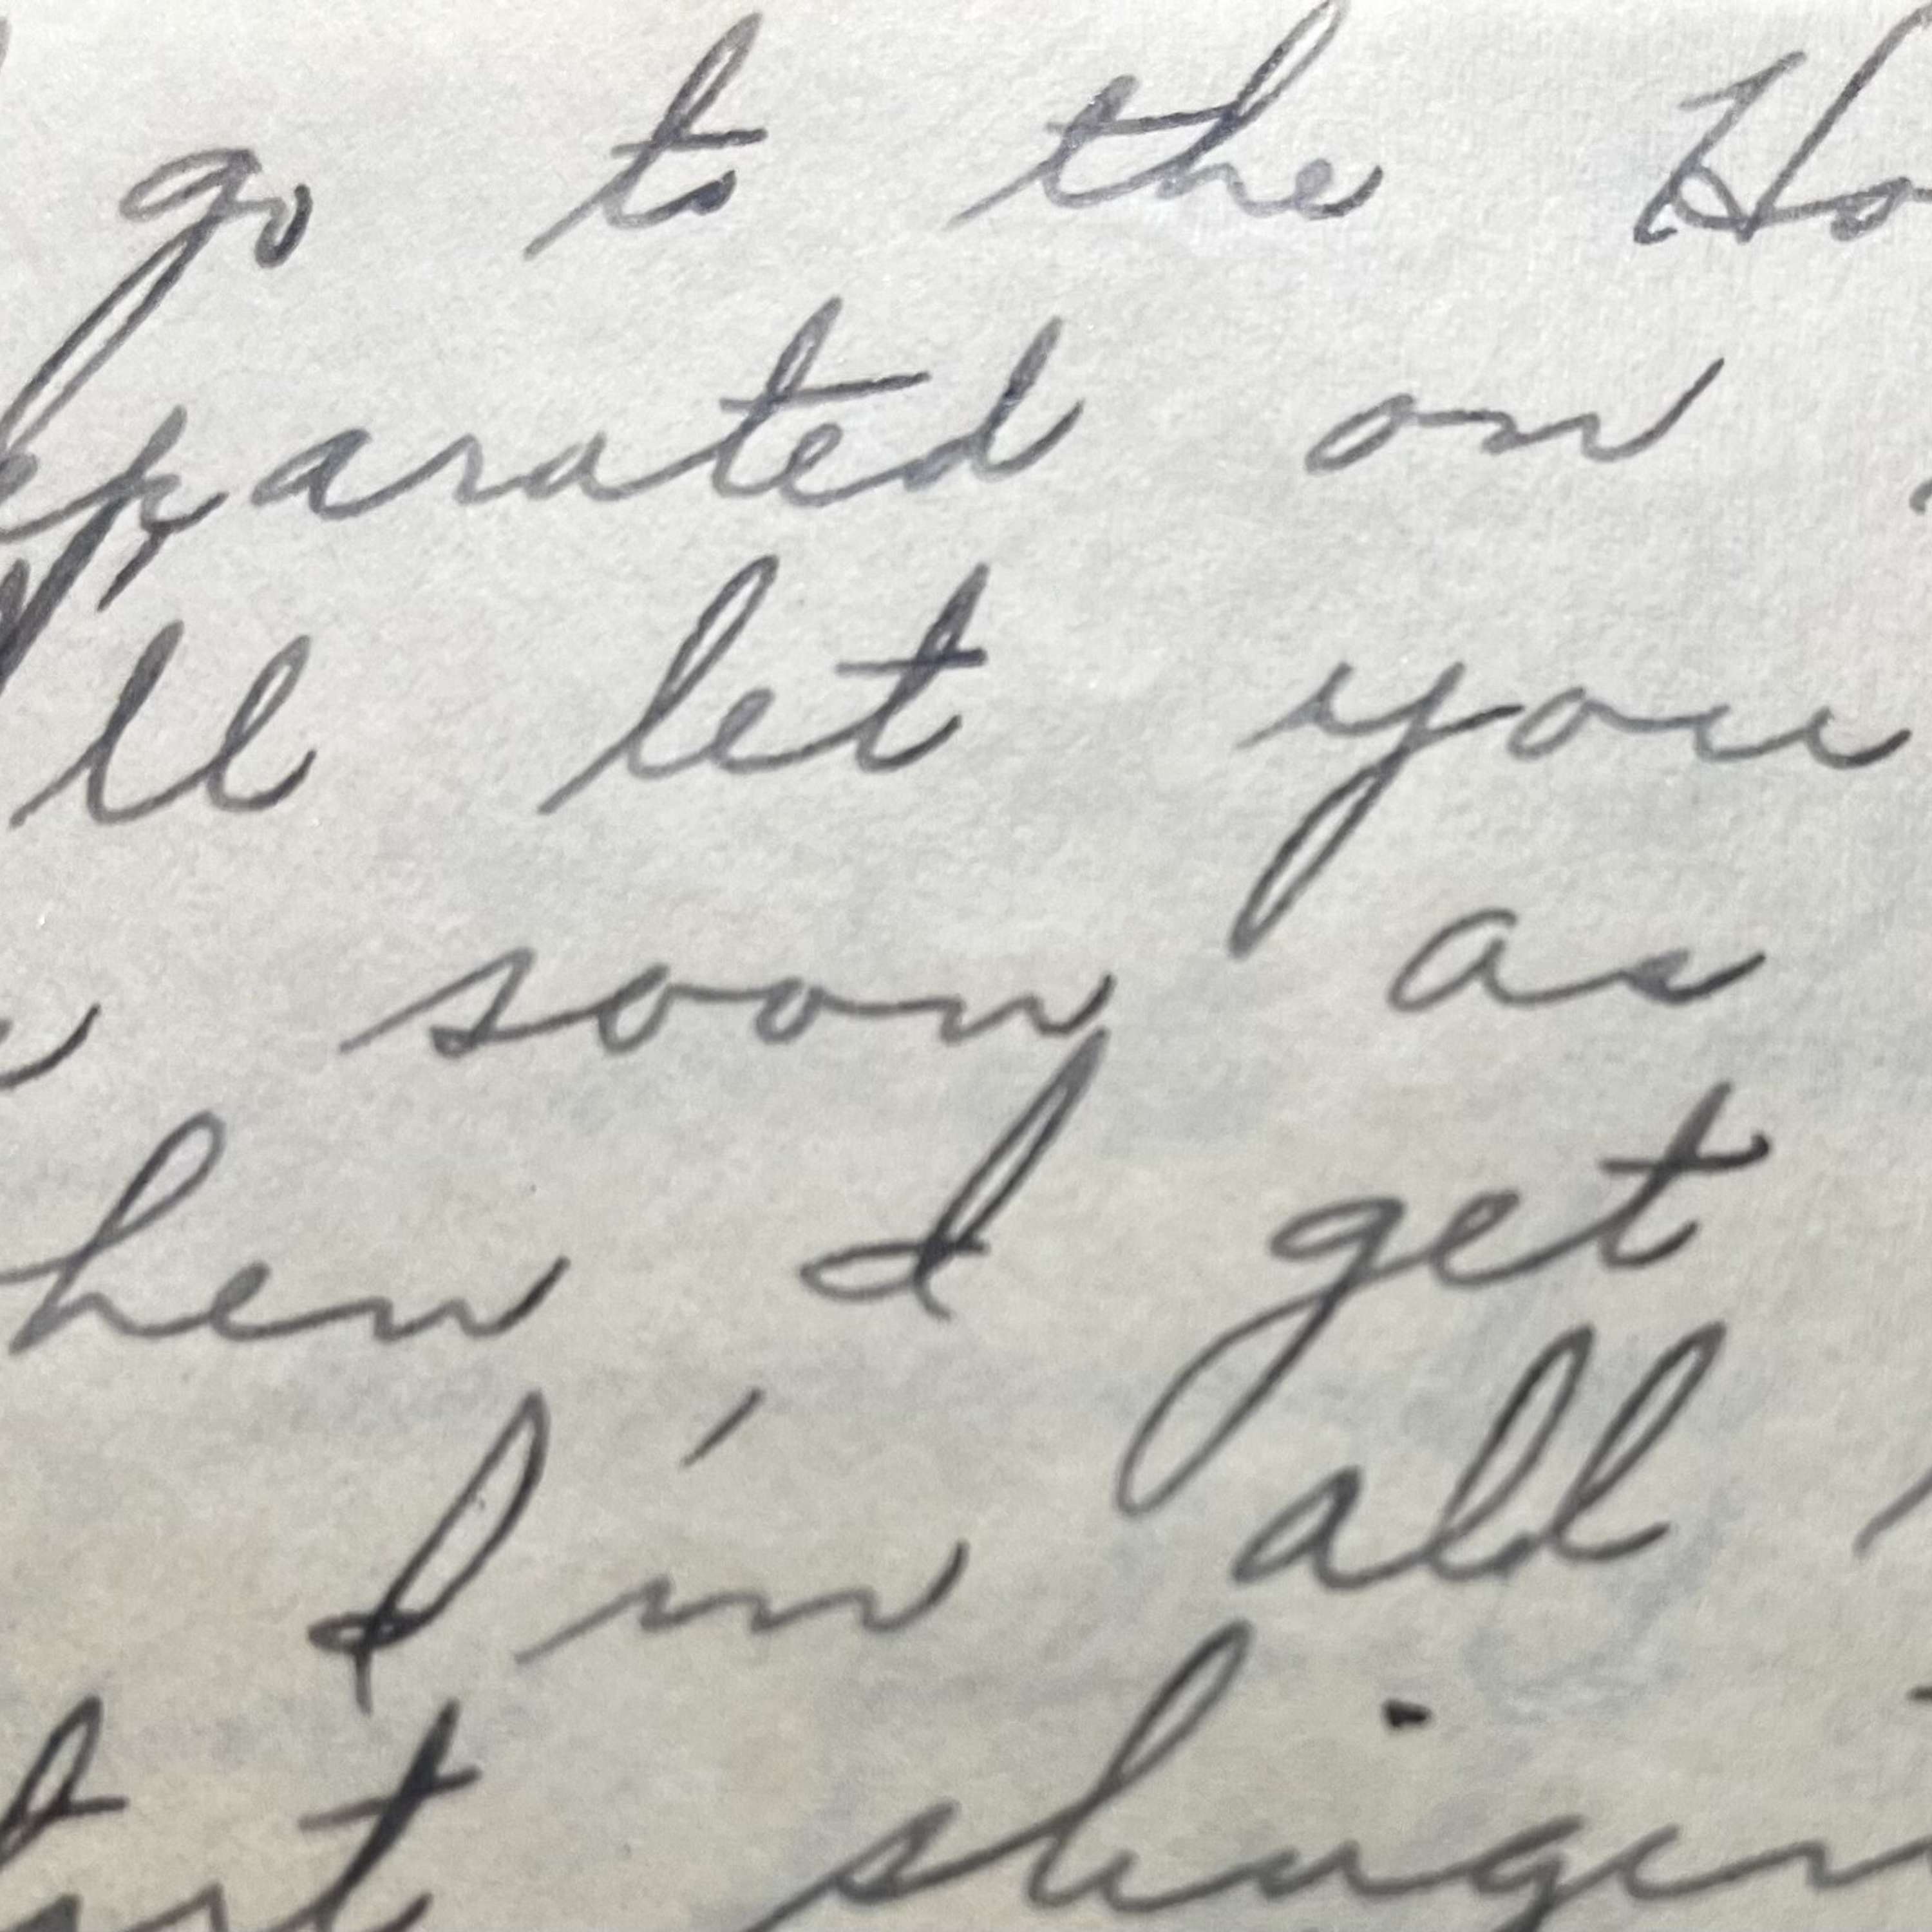 go to the Ho
eparated on
ll let you
soon as
hen I get
I'm all
tart slingin